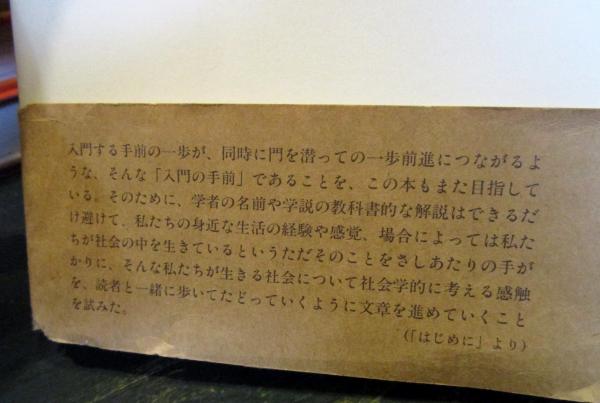 入門する手前の一歩が、同時に門を潜っての一歩前進につながるよ
うな、そんな「入門の手前」であることを、この本もまた目指して
いる。そのために、学者の名前や学説の教科書的な解説はできるだ
け避けて、私たちの身近な生活の経験や感覚、場合によっては私た
ちが社会の中を生きているというただそのことをさしあたりの手が
かりに、そんな私たちが生きる社会について社会学的に考える感触
を、読者と一緒に歩いてたどっていくように文章を進めていくこと
を試みた。
(「はじめに」より)